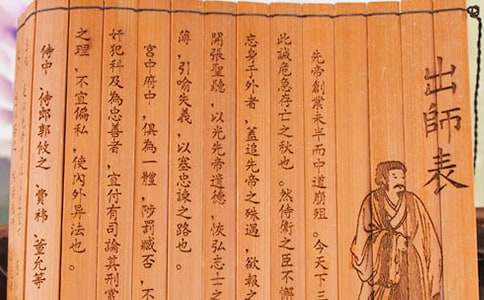 出師表
先帝創業未半而中道崩殂。今天下三
此誠危急存亡之秋也。然侍衛之臣不懈
忘身于外者，蓋追先帝之殊遇，欲報之
開張聖聽，以光先帝遺德，恢弘志士之
薄，引喻失義，以塞忠諫之路也。
宮中府中，俱為一體，陟罰臧否，不
奸犯科及為忠善者，宜付有司論其刑賞
之理，不宜偏私，使內外异法也。
侍中、侍郎郭攸之、費禕、董允等